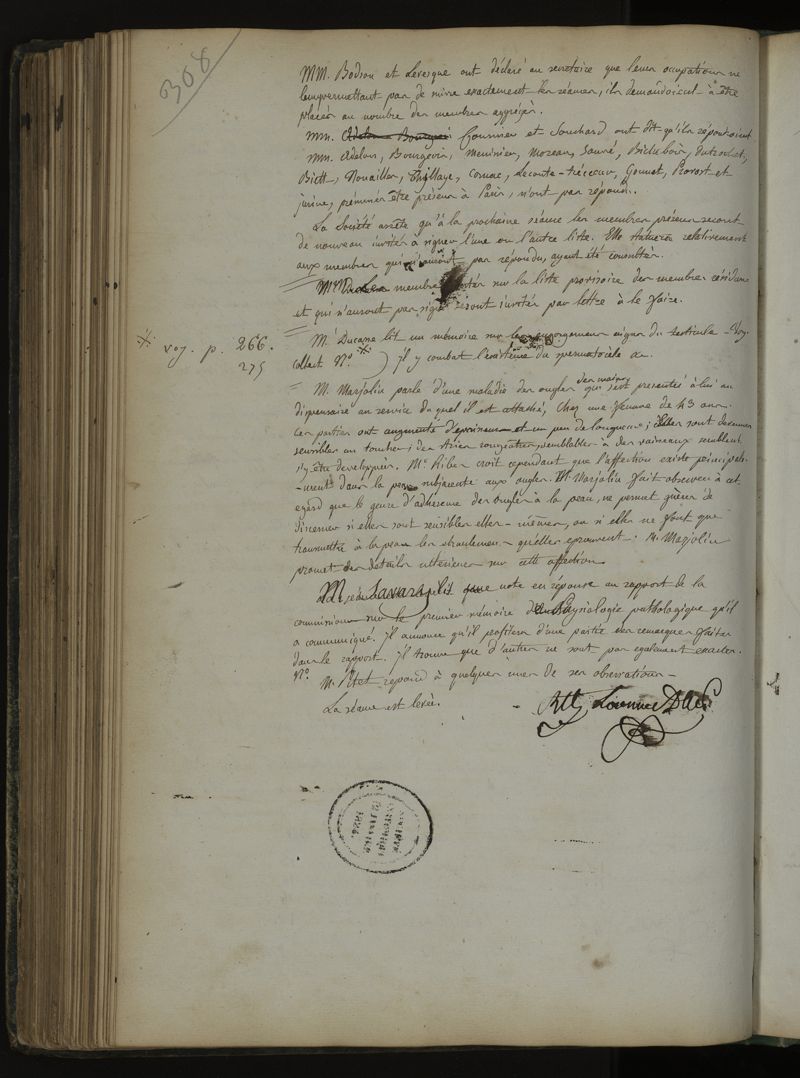 308
MM. Bodson et Levesque ont déclaré au secrétaire que leurs occupations ne
leur permettant pas de suivre exactement les séances, ils demandoient à être
placés au nombre des membres aggrégés.
MM. Adelon Bourgeois Fournier et Souchard ont dit qu'ils répondroient
MM. Adelon, Bourgeois, Meunier, Moreau, Sauné, Dutrochet,
Biett, Nouailles, Thillaye, Cornac, Leconte, Gomet, Provost et
Jurine, présumés être présens à Paris, n'ont pas répondu.
La Société arrête qu'à la prochaine séance les membres présens seront
de nouveau invités à signer l'une ou l'autre liste. Elle statuera relativement
aux membres qui n'auront pas répondu, ayant été consultés.
membres portés sur la liste provisoire des membres résidans
et qui n'auront pas signé seront invités par lettre à le faire.
※ voy. p. 266.
275
M. Ducamp lit un mémoire sur les engorgemens aigus du testicule — Voy.
collect. N.º ※ ) Il y combat l'existence du spermatocèle &c.
M. Marjolin parle d'une maladie des ongles des mains qui s'est présentée à lui au
dispensaire au service duquel il est attaché, chez une femme de 43 ans.
Ces parties ont augmenté d'épaisseur et un peu de longueur; elles sont devenues
sensibles au toucher; des stries rougeâtres, semblables à des vaisseaux semblent
s'y être développées. M. Ribes croit cependant que l'affection existe principale-
-ment dans la peau subjacente aux ongles. M. Marjolin fait observer à cet
égard que le genre d'adhérence des ongles à la peau, ne permet guères de
discerner si elles sont sensibles elles-mêmes, ou si elles ne font que
transmettre à la peau les ébranlemens qu'elles éprouvent. M. Marjolin
promet des détails ultérieurs sur cette affection.
M. Savary lit une note en réponse au rapport de la
commission sur le premier mémoire de Physiologie pathologique qu'il
a communiqué. Il annonce qu'il profitera d'une partie des remarques faites
dans le rapport. Il trouve que d'autres ne sont pas également exactes.
N.º
M. Petet répond à quelques unes de ses observations —
La séance est levée.